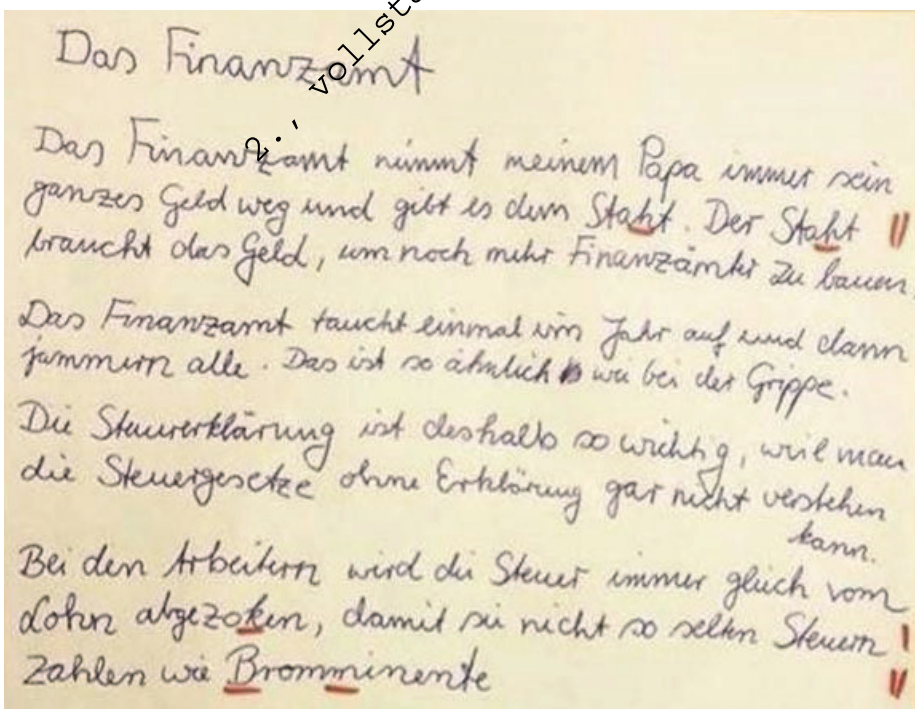 2., vollst
Das Finanzamt
Das Finanzamt nimmt meinem Papa immer sein
ganzes Geld weg und gibt es dem Staht. Der Staht
braucht das Geld, um noch mehr Finanzämter zu bauen.
Das Finanzamt taucht einmal im Jahr auf und dann
jammern alle. Das ist so ähnlich wie bei der Grippe.
Die Steuererklärung ist deshalb so wichtig, weil man
die Steuergesetze ohne Erklärung gar nicht verstehen
kann.
Bei den Arbeitern wird die Steuer immer gleich vom
Lohn abgezoken, damit sie nicht so selten Steuern
zahlen wie Bromminente